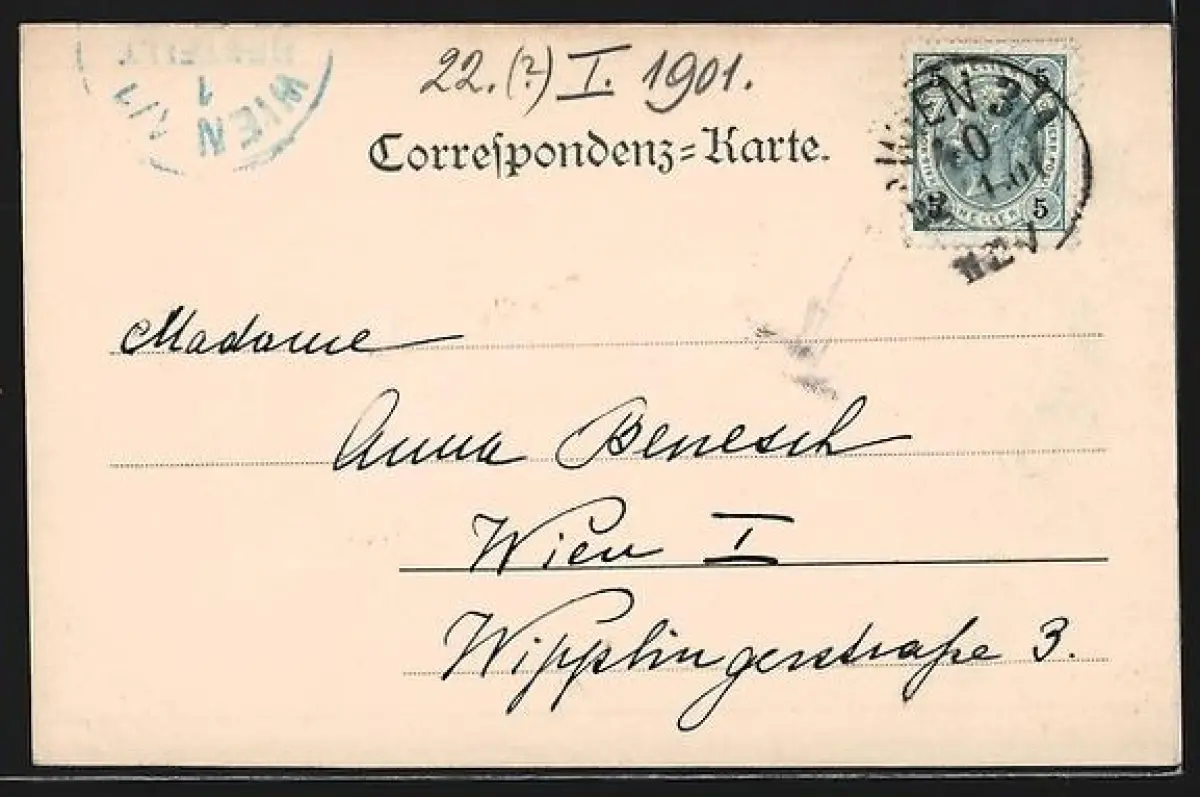 WIEN 1/1
1
22.(?) I. 1901.
Correſpondenz=Karte.
5 5
WIEN 3/
5 HELLER 5
Madame
Anna Benesch
Wien I
Wipplingerstraße 3.